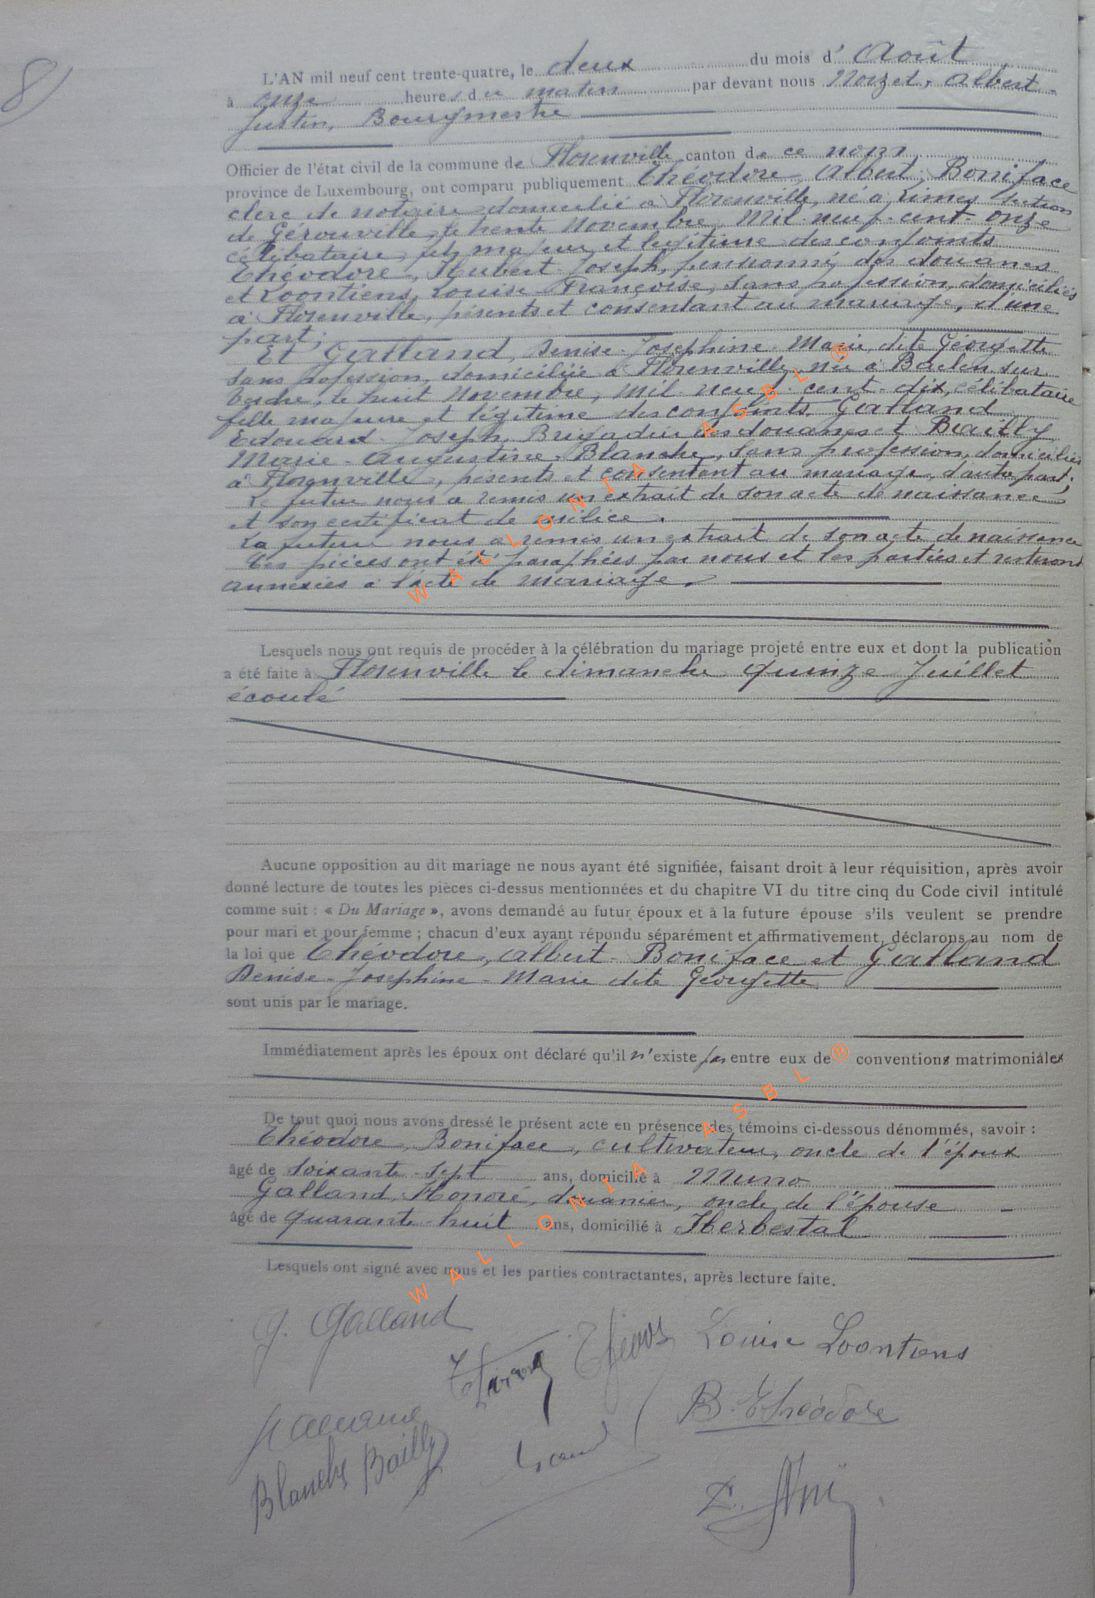 8)
L'AN mil neuf cent trente-quatre, le deux du mois d' Août
à onze heures du matin par devant nous Nozet, Albert-
Justin, Bourgmestre
Officier de l'état civil de la commune de Florenville canton de ce nom
province de Luxembourg, ont comparu publiquement Théodore, Albert, Boniface
clerc de notaire domicilié à Florenville, né à Limes section
de Gérouville, le trente Novembre, Mil-neuf-cent-onze
célibataire, fils majeur et légitime des conjoints
Théodore, Hubert-Joseph, pensionné des douanes
et Loontiens, Louise Françoise, sans profession, domiciliés
à Florenville, présents et consentant au mariage, d'une
part;
Et Galland, Denise-Josephine-Marie dite Géorgette
sans profession, domiciliée à Florenville, née à Baelen sur
Vesdre, le huit Novembre, Mil-neuf-cent-dix, célibataire
fille majeure et légitime des conjoints Galland
Edouard-Joseph, Brigadier des douanes et Bailly
Marie-Augustine-Blanche, sans profession, domiciliés
à Florenville, présents et consentant au mariage, d'autre part;
Le futur nous a remis un extrait de son acte de naissance
et son certificat de milice.
La future nous a remis un extrait de son acte de naissance
Ces pièces ont été paraphées par nous et les parties et resteront
annexées à l'acte de mariage.
Lesquels nous ont requis de procéder à la célébration du mariage projeté entre eux et dont la publication
a été faite à Florenville le dimanche quinze Juillet
écoulé
Aucune opposition au dit mariage ne nous ayant été signifiée, faisant droit à leur réquisition, après avoir
donné lecture de toutes les pièces ci-dessus mentionnées et du chapitre VI du titre cinq du Code civil intitulé
comme suit : « Du Mariage », avons demandé au futur époux et à la future épouse s'ils veulent se prendre
pour mari et pour femme ; chacun d'eux ayant répondu séparément et affirmativement, déclarons au nom de
la loi que Théodore, Albert-Boniface et Galland
Denise-Josephine-Marie dite Géorgette
sont unis par le mariage.
Immédiatement après les époux ont déclaré qu'il n'existe pas entre eux de conventions matrimoniales
De tout quoi nous avons dressé le présent acte en présence des témoins ci-dessous dénommés, savoir :
Théodore, Boniface, cultivateur, oncle de l'époux
âgé de soixante-sept ans, domicilié à Muno
Galland, Honoré, douanier, oncle de l'épouse
âgé de quarante-huit ans, domicilié à Herbestal
Lesquels ont signé avec nous et les parties contractantes, après lecture faite.
G. Galland
Louise Loontiens
B. Théodore
Blanche Bailly
WALLONIA ASBL ®
WALLONIA ASBL ®